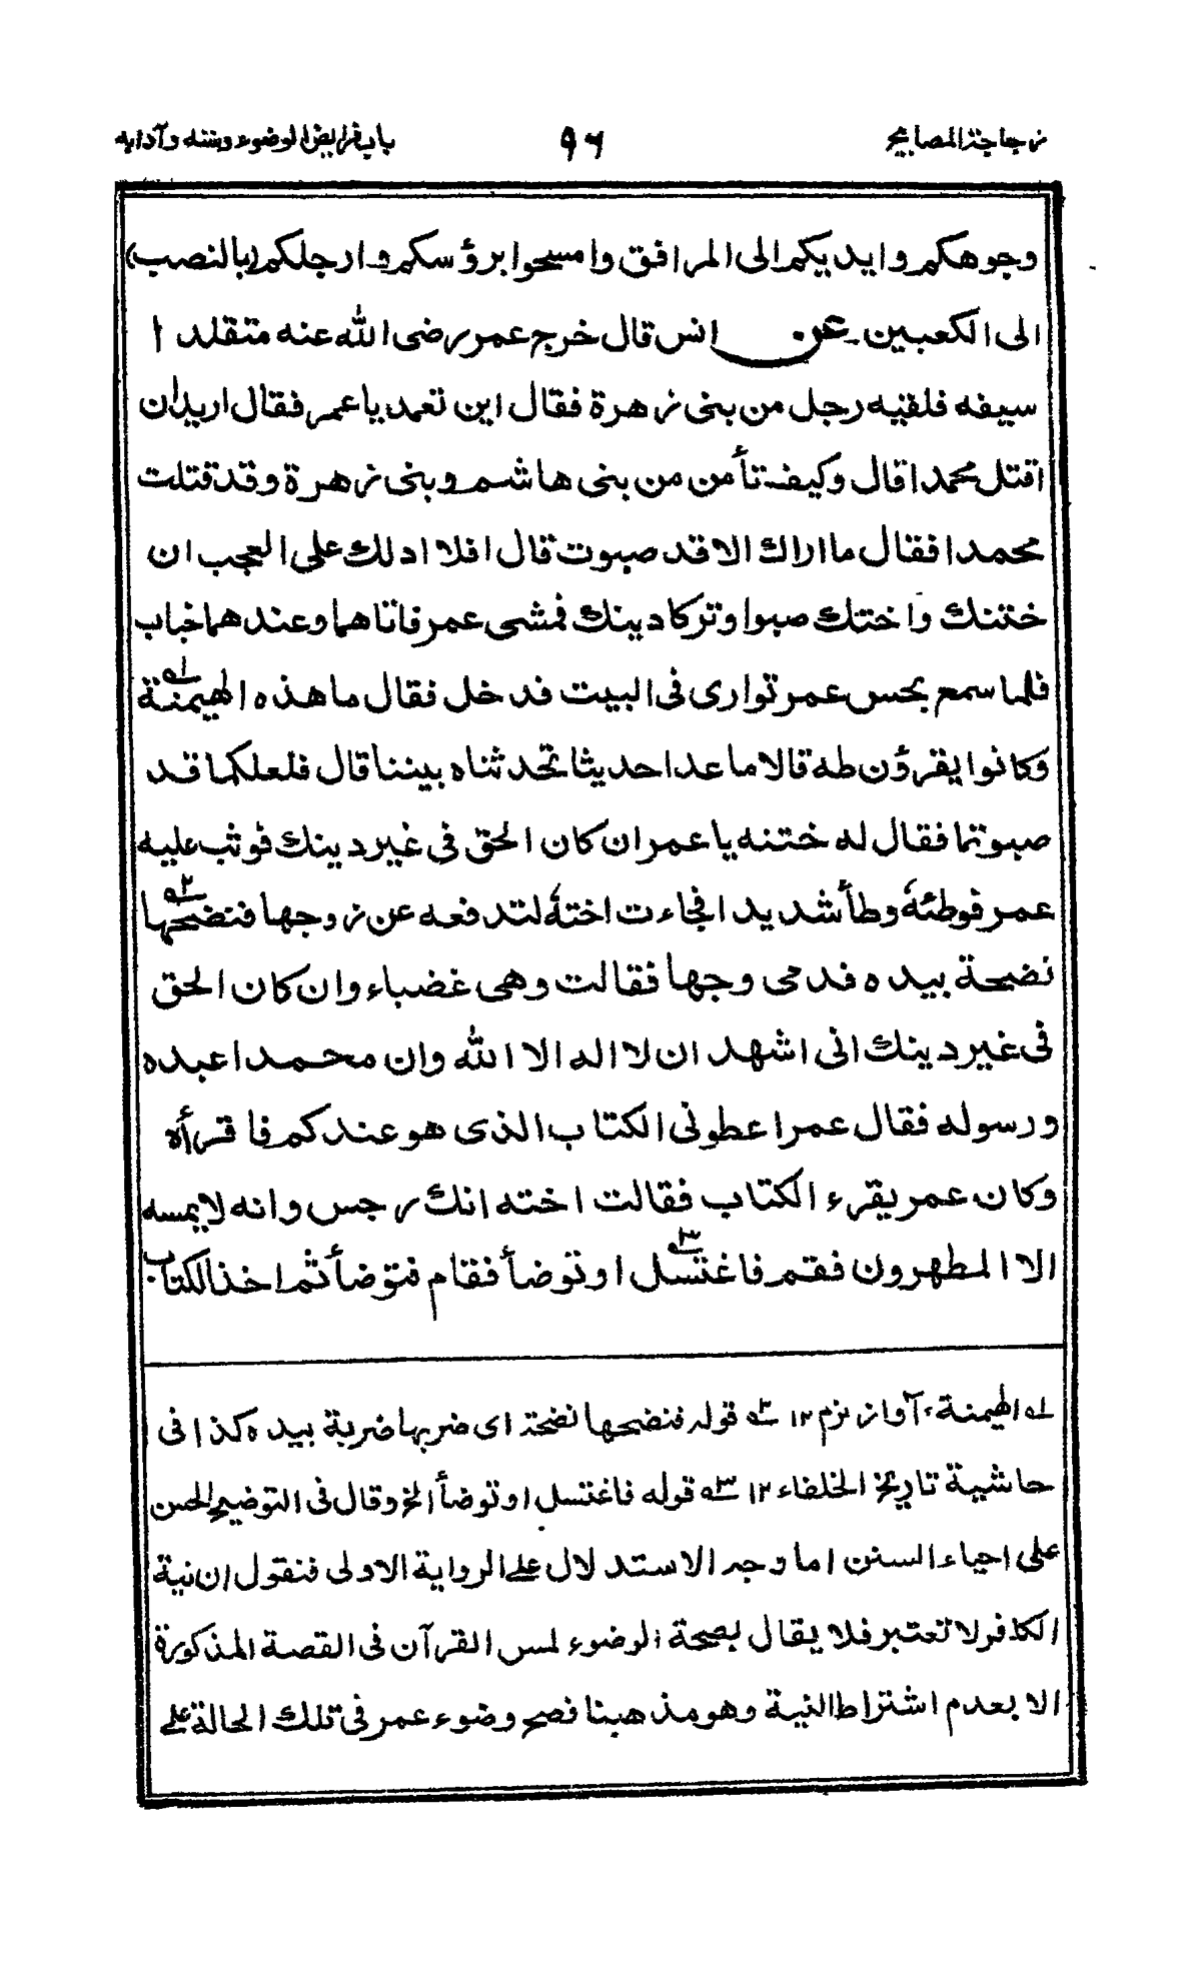 زجاجة المصابيح ٩٦ باب فرايض الوضوء وسننه وآدابه
وجوهكم وايديكم الى المرافق وامسحوا برؤسكم وارجلكم (بالنصب)
الى الكعبين۔ عن انس قال خرج عمر رضى الله عنه متقلدا
سيفه فلقيه رجل من بنى زهرة فقال اين تعمد يا عمر فقال اريد ان
اقتل محمدا قال وكيف تأمن من بنى هاشم وبنى زهرة وقد قتلت
محمدا فقال ما اراك الا قد صبوت قال افلا ادلك على العجب ان
ختنك واختك صبوا وتركا دينك فمشى عمر فاتاهما وعندهما خباب
فلما سمع بحس عمر توارى فى البيت فدخل فقال ما هذه الهيمنة ١ه
وكانوا يقرؤن طه قالا ما عدا حديثا تحدثناه بيننا قال فلعلكما قد
صبوتما فقال له ختنه يا عمر ان كان الحق فى غير دينك فوثب عليه
عمر فوطئه وطأ شديدا فجاءت اخته لتدفعه عن زوجها فنضحها ٢ه
نضحة بيده فدمى وجهها فقالت وهى غضباء وان كان الحق
فى غير دينك انى اشهد ان لا اله الا الله وان محمدا عبده
ورسوله فقال عمر اعطونى الكتاب الذى هو عندكم فاقرأه
وكان عمر يقرء الكتاب فقالت اخته انك رجس وانه لا يمسه
الا المطهرون فقم فاغتسل ٣ه او توضأ فقام فتوضأ ثم اخذ الكتاب
١ه الهيمنة، آواز نرم ١٢ ٢ه قوله فنضحها نضحة اى ضربها ضربة بيده كذا فى
حاشية تاريخ الخلفاء ١٢ ٣ه قوله فاغتسل او توضأ الخ وقال فى التوضيح الحسن
على احياء السنن اما وجه الاستدلال على الرواية الاولى فنقول ان نية
الكافر لا تعتبر فلا يقال بصحة الوضوء لمس القرآن فى القصة المذكورة
الا بعدم اشتراط النية وهو مذهبنا فصح وضوء عمر فى تلك الحالة على